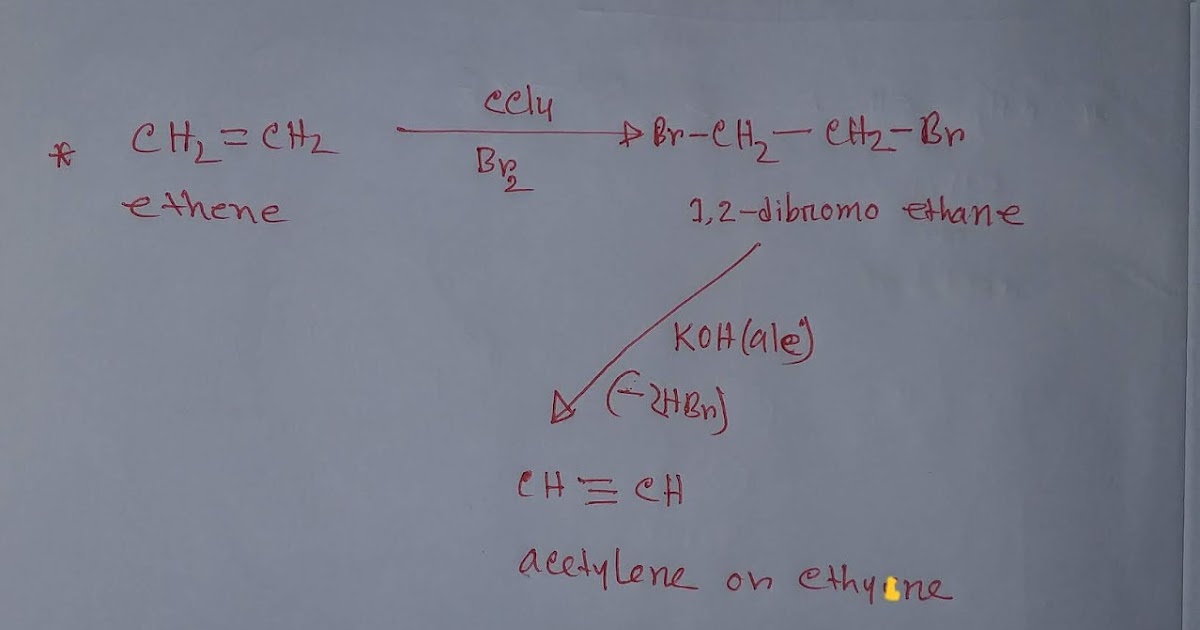 CCl4
* CH2=CH2 → Br-CH2-CH2-Br
Br2
ethene 1,2-dibromo ethane
KOH(alc)
(-2HBr)
CH≡CH
acetylene or ethyne